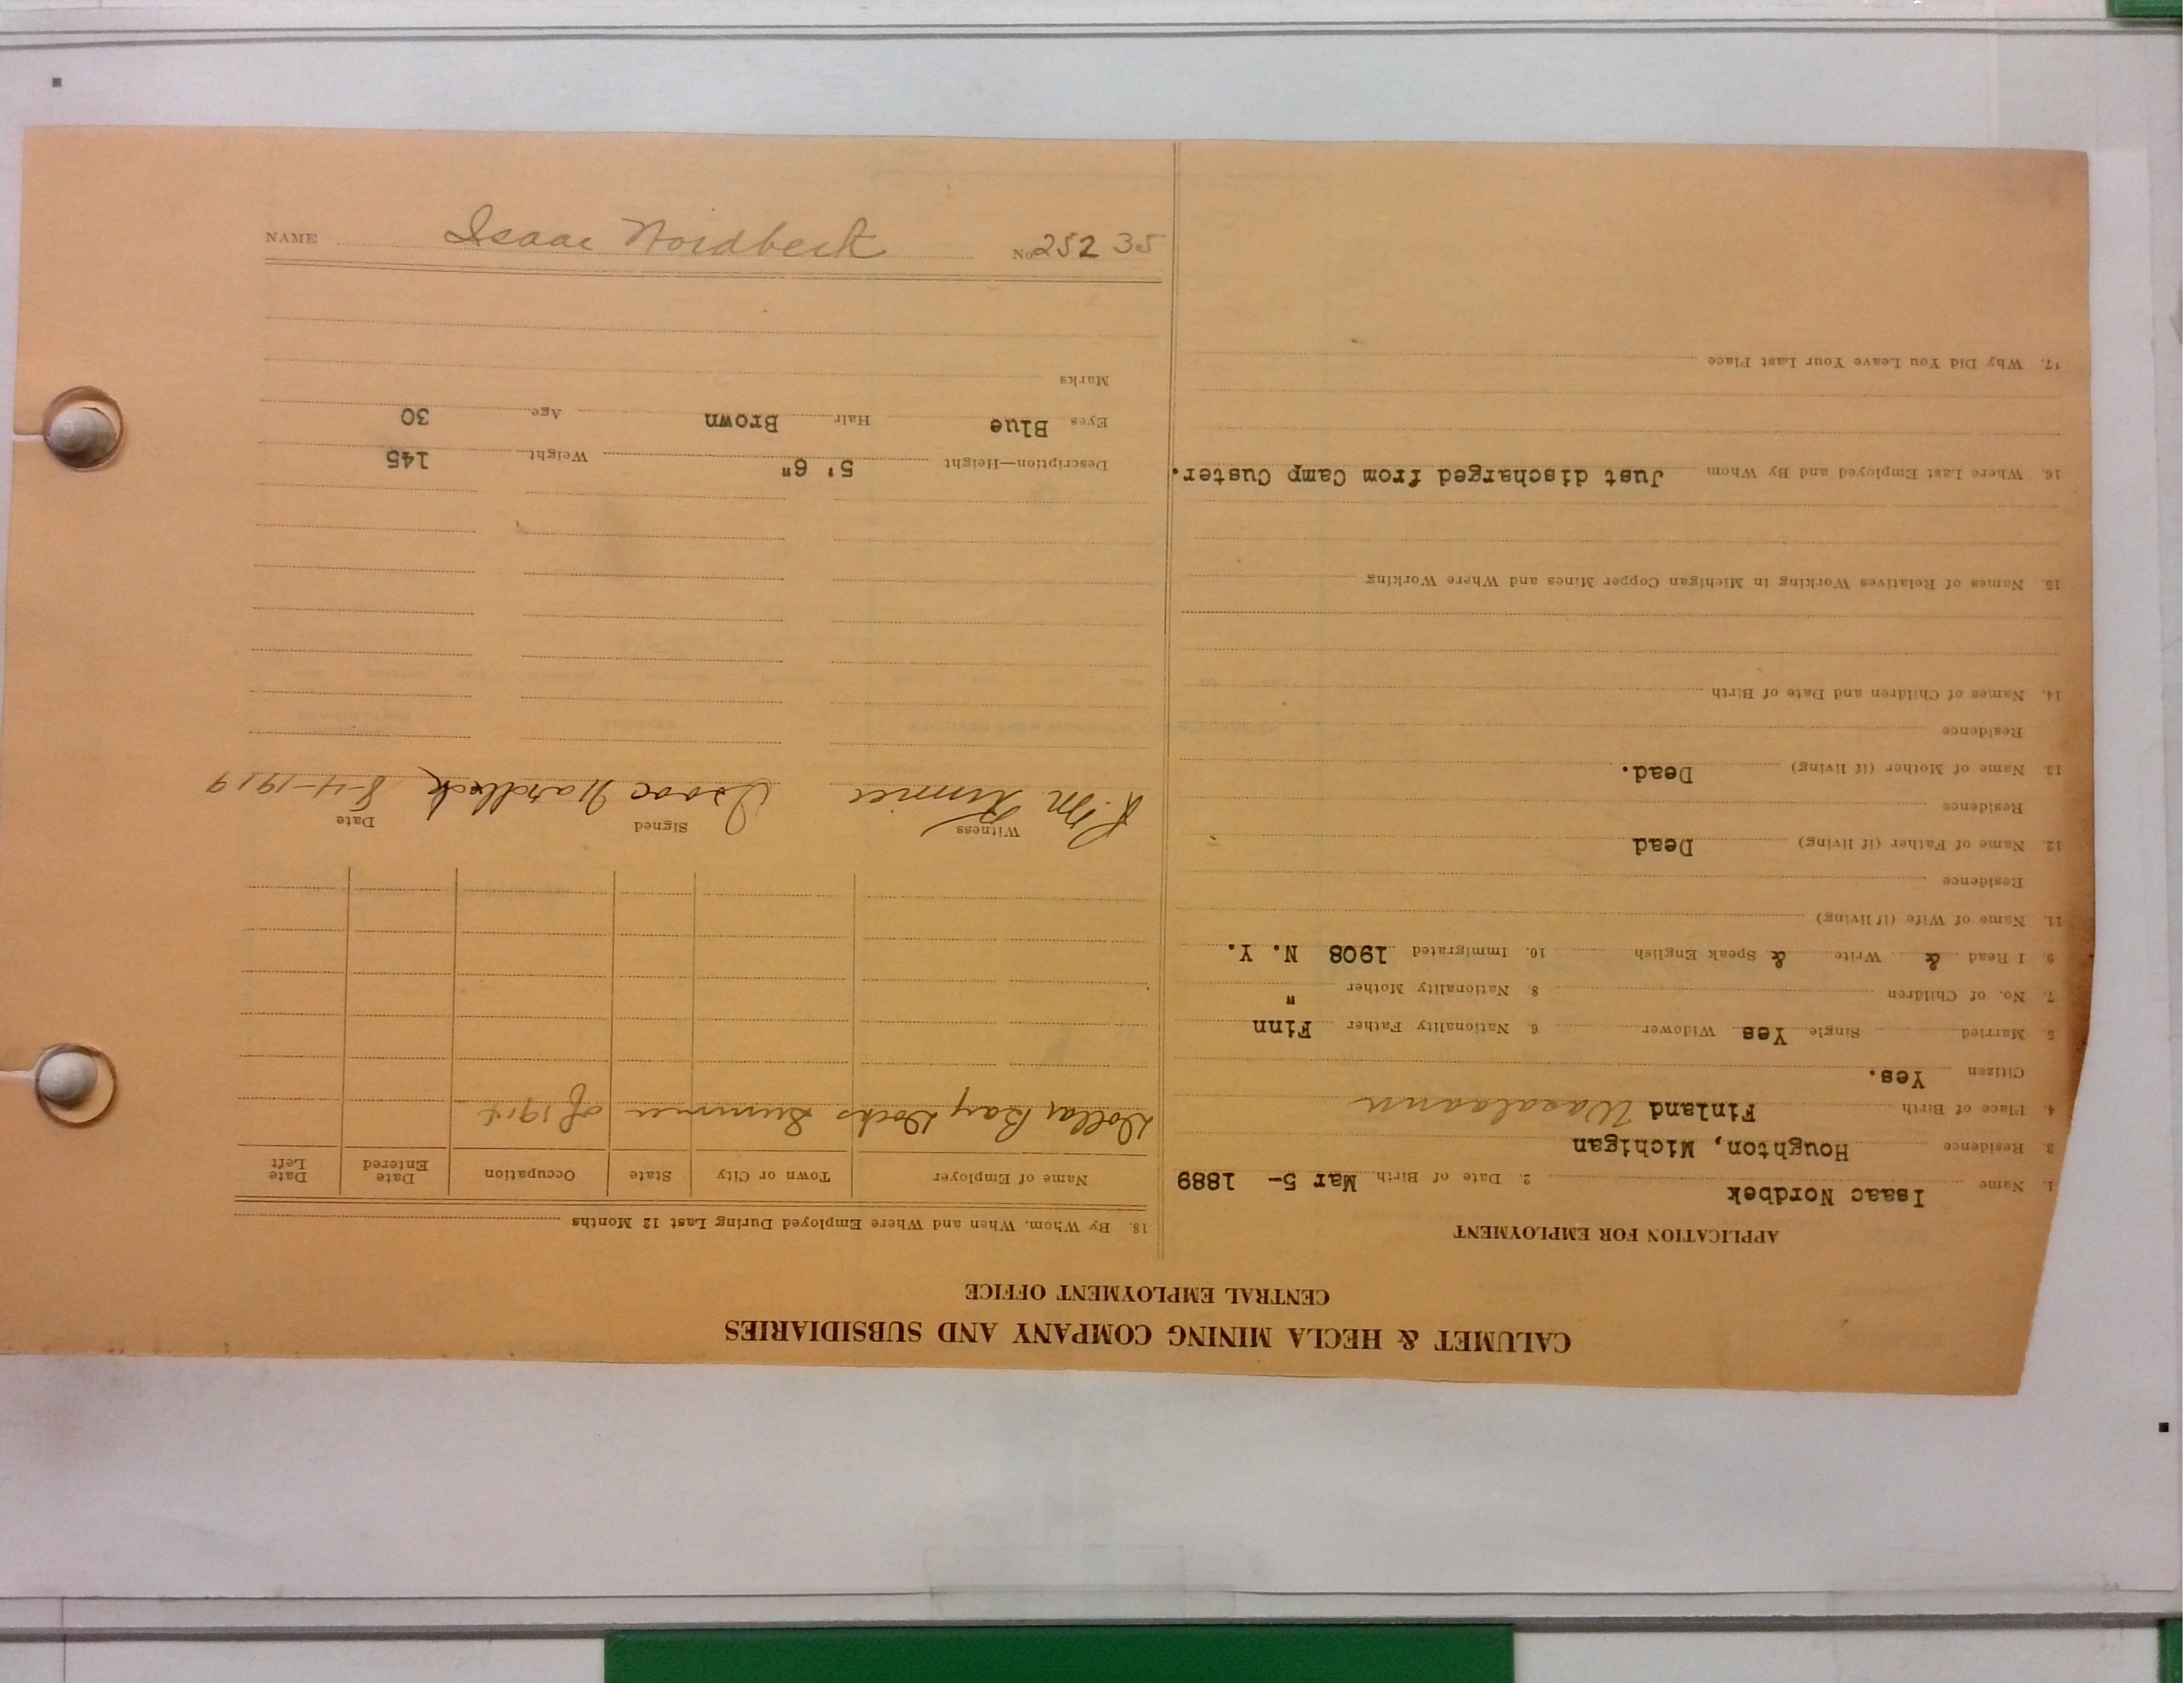 CALUMET & HECLA MINING COMPANY AND SUBSIDIARIES
CENTRAL EMPLOYMENT OFFICE
APPLICATION FOR EMPLOYMENT
1. Name Isaac Nordbek 2. Date of Birth Mar 5- 1889
3. Residence Houghton, Michigan
4. Place of Birth Finland
Citizen Yes.
5. Married Single Yes Widower 6. Nationality Father Finn
7. No. of Children 8. Nationality Mother "
9. I Read & Write & Speak English 10. Immigrated 1908 N. Y.
11. Name of Wife (if living)
Residence
12. Name of Father (if living) Dead
Residence
13. Name of Mother (if living) Dead.
Residence
14. Names of Children and Date of Birth
15. Names of Relatives Working in Michigan Copper Mines and Where Working
16. Where Last Employed and By Whom Just discharged from Camp Custer.
17. Why Did You Leave Your Last Place
18. By Whom, When and Where Employed During Last 12 Months
Name of Employer Town or City State Occupation Date Entered Date Left
Dollar Bay Docks Summer of
Witness Signed Date
Isaac Nordbeck 8-4-1919
Description—Height 5' 6" Weight 145
Eyes Blue Hair Brown Age 30
Marks
NAME Isaac Nordbeck No. 25235